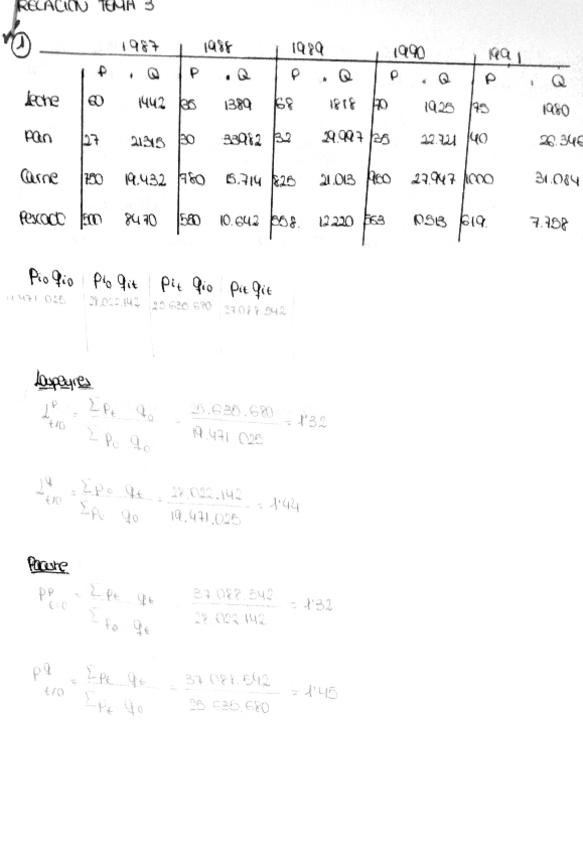 RELACION TEMA 3
1
1987 1988 1989 1990 1991
P . Q P . Q P . Q P . Q P . Q
leche 60 1442 65 1389 68 1818 70 1925 75 1980
pan 27 21315 30 33982 32 29.997 35 22.721 40 26.346
Carne 750 19.432 780 15.714 825 21.013 900 27.947 1000 31.084
Pescado 500 8470 550 10.642 558. 12.220 563 10513 619. 7.758
Pio qio Pio qit Pit qio Pit qit
28.022.142 25.635.680 37.087.542
Laspeyres
L p t/0 = Σ Pt q0 / Σ P0 q0 = 25.635.680 / 19.471.025 = 1'32
L q t/0 = Σ P0 qt / Σ P0 q0 = 28.022.142 / 19.471.025 = 1'44
Paasche
P p t/0 = Σ Pt qt / Σ P0 qt = 37.087.542 / 28.022.142 = 1'32
P q t/0 = Σ Pt qt / Σ Pt q0 = 37.087.542 / 25.635.680 = 1'45